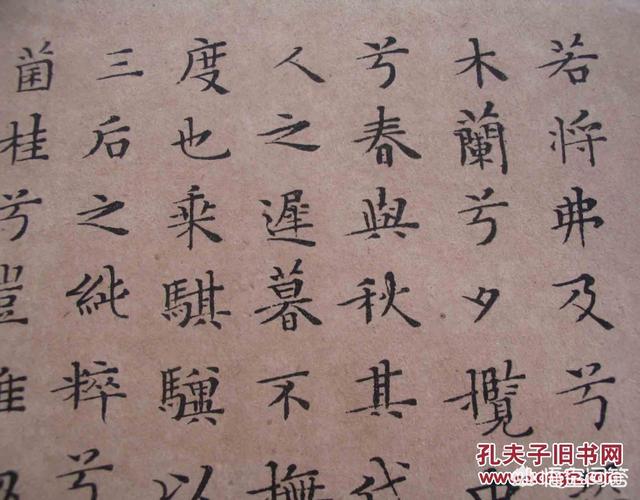 若將弗及兮
木蘭兮夕攬
兮春與秋其代
人之遲暮不撫
度也乘騏驥以
三后之純粹兮
菌桂兮豈維
孔夫子旧书网
悟空问答